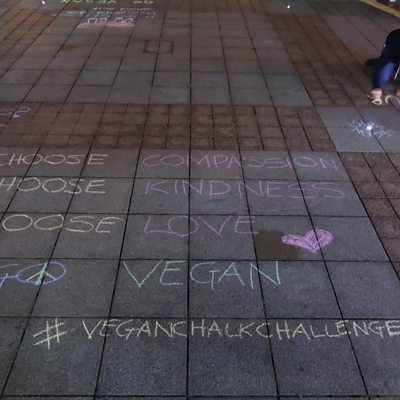 GO VEGAN
CHOOSE COMPASSION
CHOOSE KINDNESS
CHOOSE LOVE
GO VEGAN
# VEGANCHALKCHALLENGE